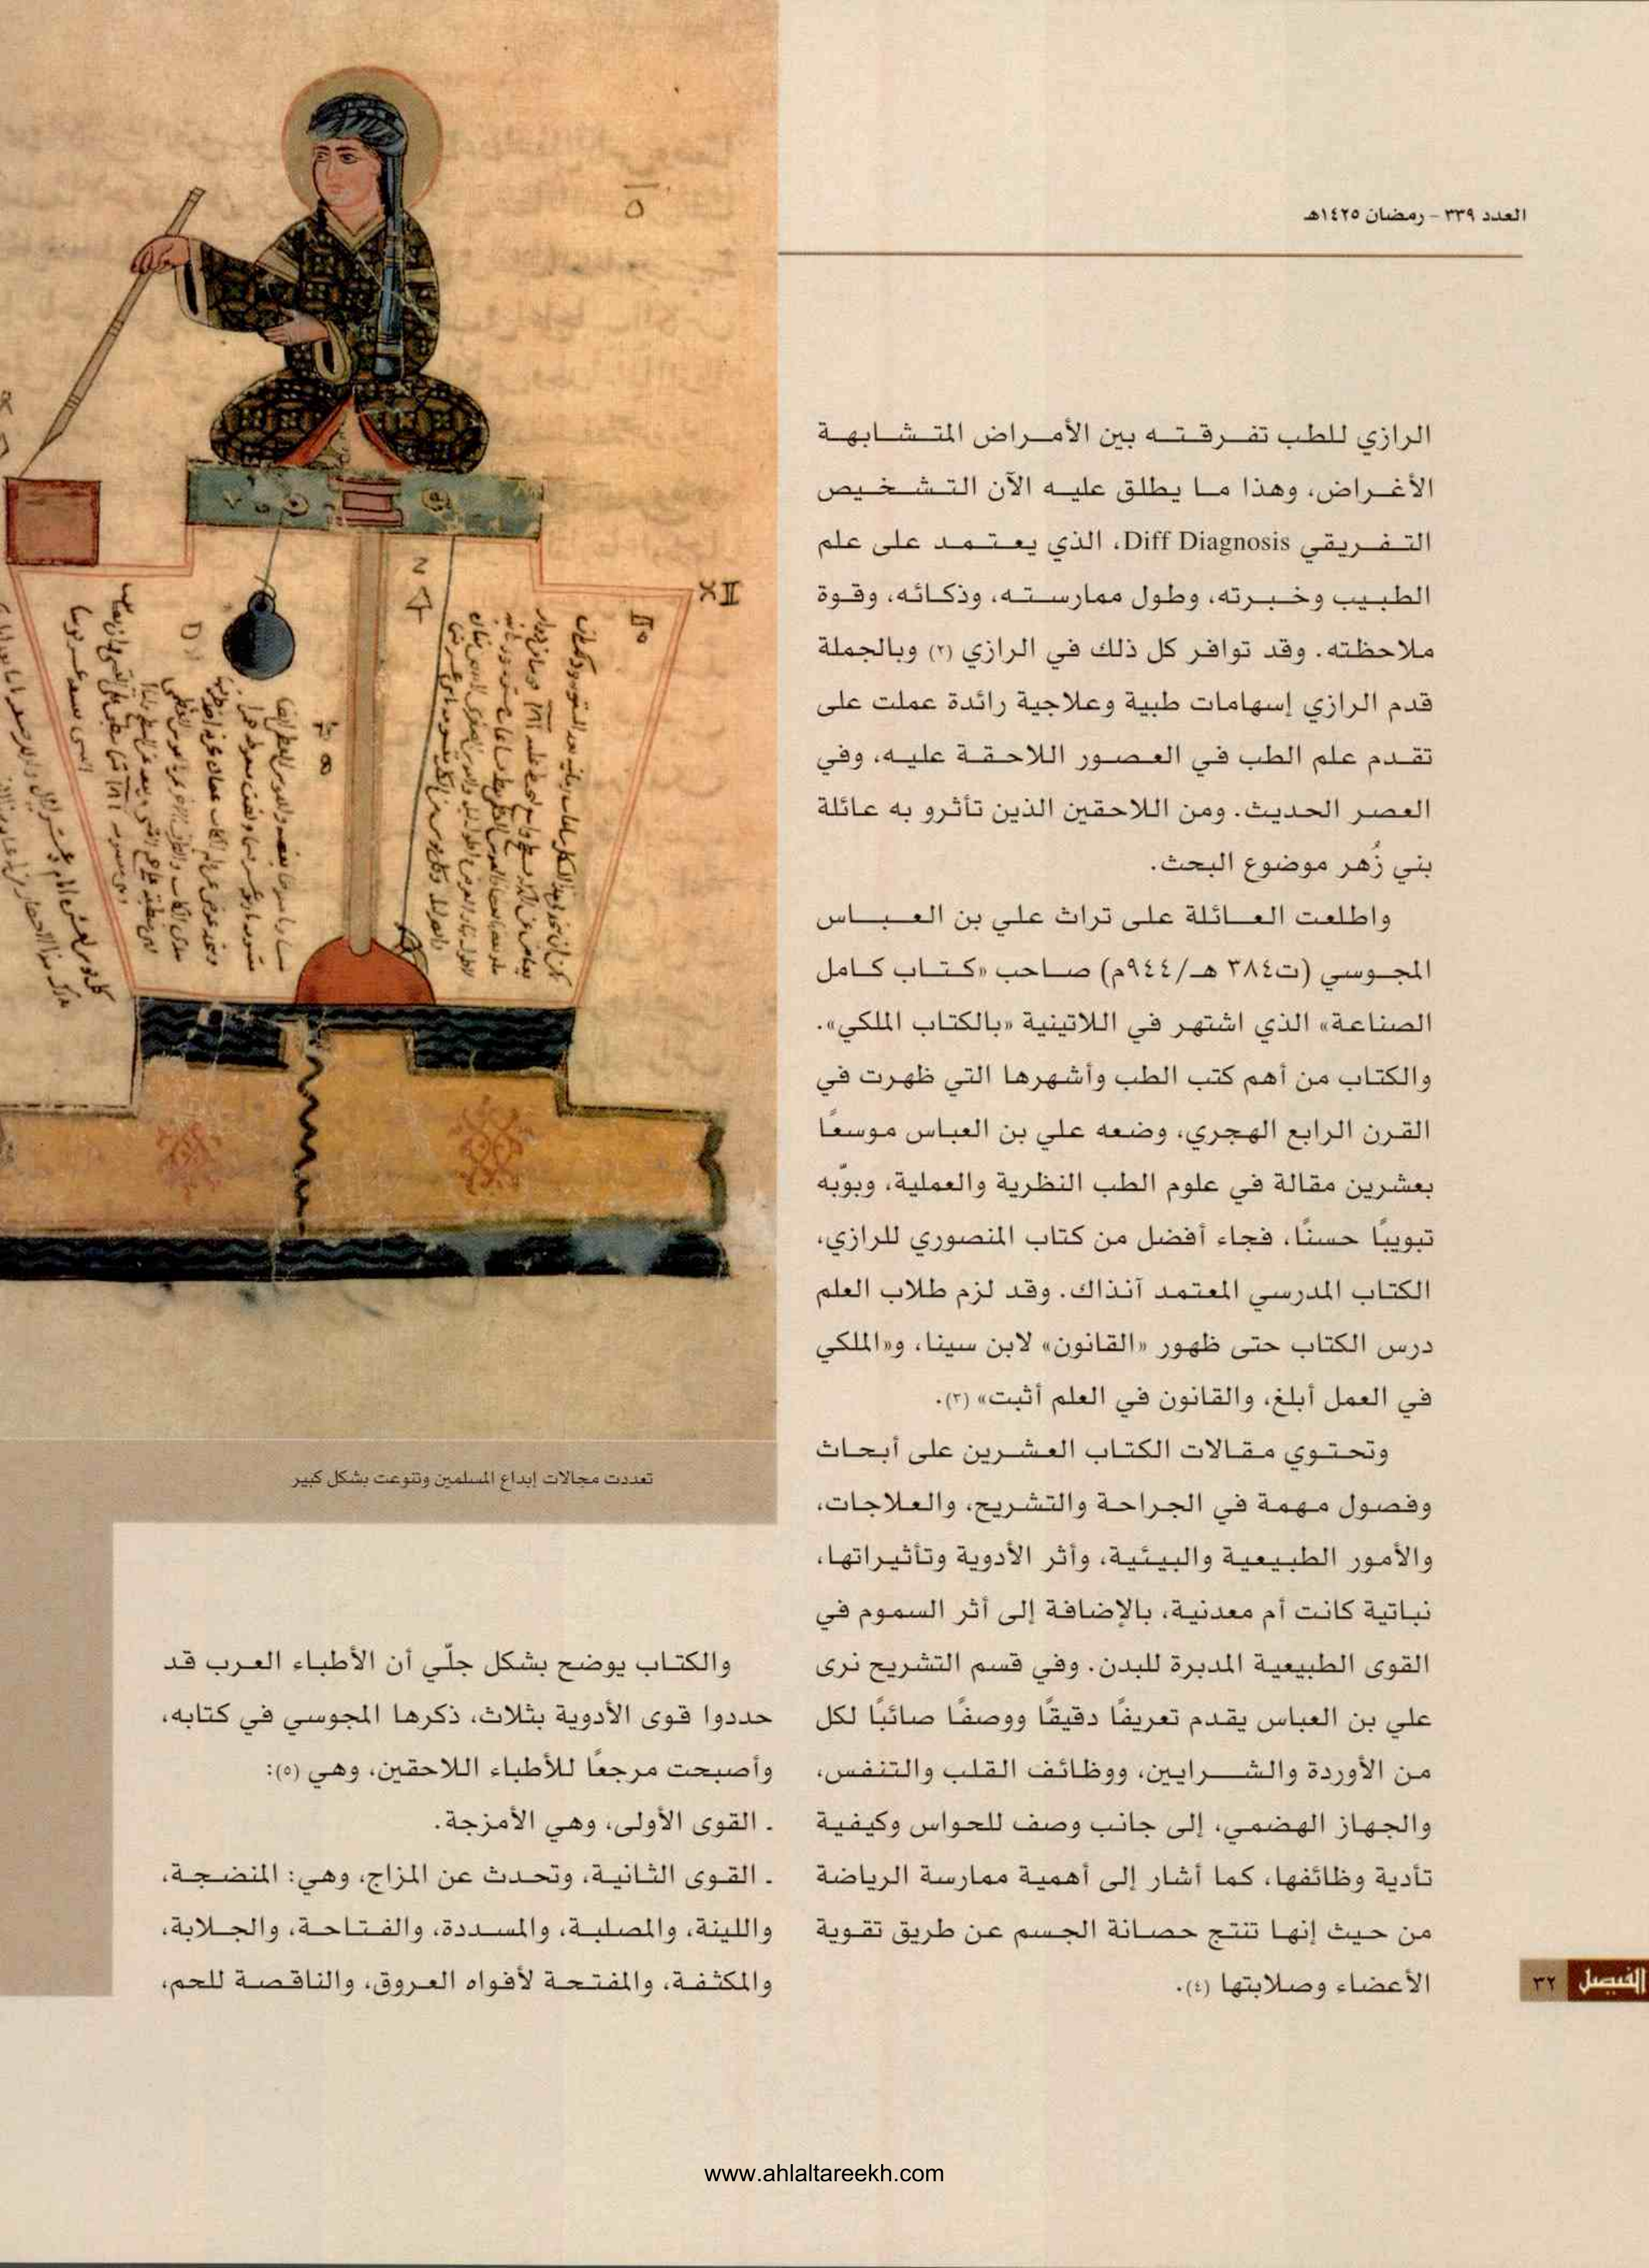 العدد ٣٣٩ - رمضان ١٤٢٥هـ
الرازي للطب تفرقته بين الأمراض المتشابهة
الأغراض، وهذا ما يطلق عليه الآن التشخيص
التفريقي Diff Diagnosis، الذي يعتمد على علم
الطبيب وخبرته، وطول ممارسته، وذكائه، وقوة
ملاحظته. وقد توافر كل ذلك في الرازي (٢) وبالجملة
قدم الرازي إسهامات طبية وعلاجية رائدة عملت على
تقدم علم الطب في العصور اللاحقة عليه، وفي
العصر الحديث. ومن اللاحقين الذين تأثرو به عائلة
بني زُهر موضوع البحث.
واطلعت العائلة على تراث علي بن العباس
المجوسي (ت٣٨٤ هـ/٩٤٤م) صاحب «كتاب كامل
الصناعة» الذي اشتهر في اللاتينية «بالكتاب الملكي».
والكتاب من أهم كتب الطب وأشهرها التي ظهرت في
القرن الرابع الهجري، وضعه علي بن العباس موسعًا
بعشرين مقالة في علوم الطب النظرية والعملية، وبوّبه
تبويبًا حسنًا، فجاء أفضل من كتاب المنصوري للرازي،
الكتاب المدرسي المعتمد آنذاك. وقد لزم طلاب العلم
درس الكتاب حتى ظهور «القانون» لابن سينا، و«الملكي
في العمل أبلغ، والقانون في العلم أثبت» (٣).
وتحتوي مقالات الكتاب العشرين على أبحاث
وفصول مهمة في الجراحة والتشريح، والعلاجات،
والأمور الطبيعية والبيئية، وأثر الأدوية وتأثيراتها،
نباتية كانت أم معدنية، بالإضافة إلى أثر السموم في
القوى الطبيعية المدبرة للبدن. وفي قسم التشريح نرى
علي بن العباس يقدم تعريفًا دقيقًا ووصفًا صائبًا لكل
من الأوردة والشرايين، ووظائف القلب والتنفس،
والجهاز الهضمي، إلى جانب وصف للحواس وكيفية
تأدية وظائفها، كما أشار إلى أهمية ممارسة الرياضة
من حيث إنها تنتج حصانة الجسم عن طريق تقوية
الأعضاء وصلابتها (٤).
تعددت مجالات إبداع المسلمين وتنوعت بشكل كبير
والكتاب يوضح بشكل جلّي أن الأطباء العرب قد
حددوا قوى الأدوية بثلاث، ذكرها المجوسي في كتابه،
وأصبحت مرجعًا للأطباء اللاحقين، وهي (٥):
. القوى الأولى، وهي الأمزجة.
. القوى الثانية، وتحدث عن المزاج، وهي: المنضجة،
واللينة، والمصلبة، والمسددة، والفتاحة، والجلابة،
والمكثفة، والمفتحة لأفواه العروق، والناقصة للحم،
الفيصل ٣٢
www.ahlaltareekh.com